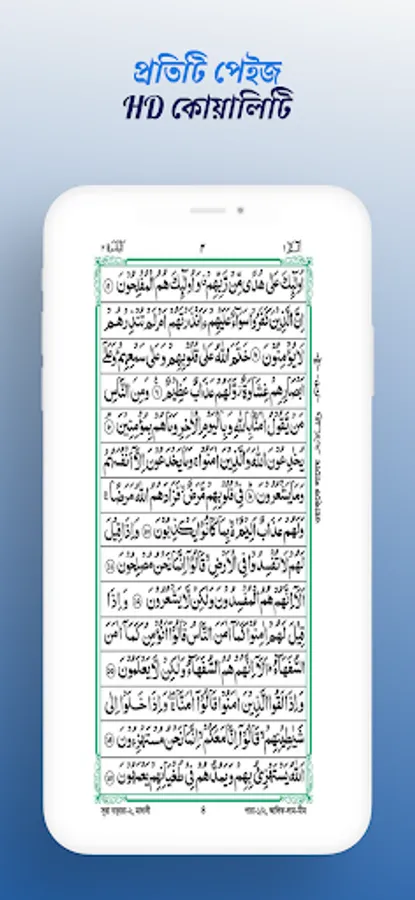 প্রতিটি পেইজ
HD কোয়ালিটি
٣
اُولٰٓئِكَ عَلٰى هُدًى مِّنْ رَّبِّهِمْ ۙ وَ اُولٰٓئِكَ هُمُ الْمُفْلِحُوْنَ ۝
اِنَّ الَّذِيْنَ كَفَرُوْا سَوَآءٌ عَلَيْهِمْ ءَاَنْذَرْتَهُمْ اَمْ لَمْ تُنْذِرْهُمْ
لَا يُؤْمِنُوْنَ ۝ خَتَمَ اللّٰهُ عَلٰى قُلُوْبِهِمْ وَ عَلٰى سَمْعِهِمْ ؕ وَ عَلٰٓى
اَبْصَارِهِمْ غِشَاوَةٌ ؗ وَّ لَهُمْ عَذَابٌ عَظِيْمٌ ۝ وَ مِنَ النَّاسِ
مَنْ يَّقُوْلُ اٰمَنَّا بِاللّٰهِ وَ بِالْيَوْمِ الْاٰخِرِ وَ مَا هُمْ بِمُؤْمِنِيْنَ ۝
يُخٰدِعُوْنَ اللّٰهَ وَ الَّذِيْنَ اٰمَنُوْا ۚ وَ مَا يَخْدَعُوْنَ اِلَّاۤ اَنْفُسَهُمْ
وَ مَا يَشْعُرُوْنَ ۝ فِيْ قُلُوْبِهِمْ مَّرَضٌ ۙ فَزَادَهُمُ اللّٰهُ مَرَضًا ۚ
وَ لَهُمْ عَذَابٌ اَلِيْمٌۢ ۙ بِمَا كَانُوْا يَكْذِبُوْنَ ۝ وَ اِذَا قِيْلَ
لَهُمْ لَا تُفْسِدُوْا فِي الْاَرْضِ ۙ قَالُوْۤا اِنَّمَا نَحْنُ مُصْلِحُوْنَ ۝
اَلَاۤ اِنَّهُمْ هُمُ الْمُفْسِدُوْنَ وَ لٰكِنْ لَّا يَشْعُرُوْنَ ۝ وَ اِذَا
قِيْلَ لَهُمْ اٰمِنُوْا كَمَاۤ اٰمَنَ النَّاسُ قَالُوْۤا اَنُؤْمِنُ كَمَاۤ اٰمَنَ
السُّفَهَآءُ ؕ اَلَاۤ اِنَّهُمْ هُمُ السُّفَهَآءُ وَ لٰكِنْ لَّا يَعْلَمُوْنَ ۝
وَ اِذَا لَقُوا الَّذِيْنَ اٰمَنُوْا قَالُوْۤا اٰمَنَّا ۖۚ وَ اِذَا خَلَوْا اِلٰى
شَيٰطِيْنِهِمْ ۙ قَالُوْۤا اِنَّا مَعَكُمْ ۙ اِنَّمَا نَحْنُ مُسْتَهْزِءُوْنَ ۝
اَللّٰهُ يَسْتَهْزِئُ بِهِمْ وَ يَمُدُّهُمْ فِيْ طُغْيَانِهِمْ يَعْمَهُوْنَ ۝
সূরা বাকারা-২, মাদানী ৪ পারা-১/২, আলিফ-লাম-মীম